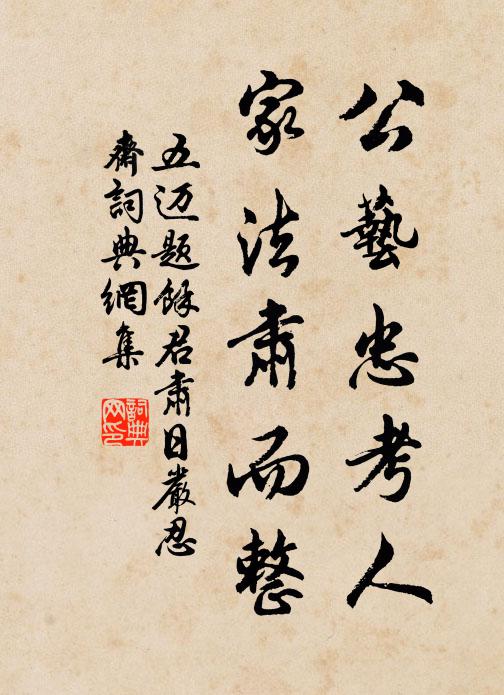 公藝忠考人
家法肅而整
五迈题餘君肅日嚴忍
齋詞典網集
詞典
网印